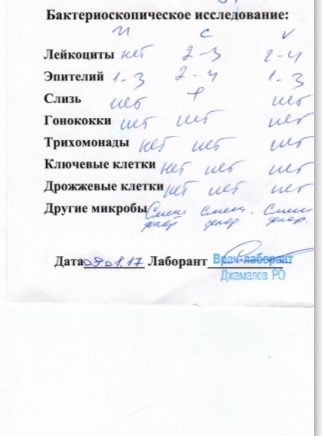 Бактериоскопическое исследование:
u c v
Лейкоциты нет 2-3 2-4
Эпителий 1-3 2-4 1-3
Слизь нет + нет
Гонококки нет нет нет
Трихомонады нет нет нет
Ключевые клетки нет нет нет
Дрожжевые клетки нет нет нет
Другие микробы Смеш. Смеш. Смеш.
флор. флор. флор.
Дата 09.01.17 Лаборант Врач-лаборант
Джамалов РО